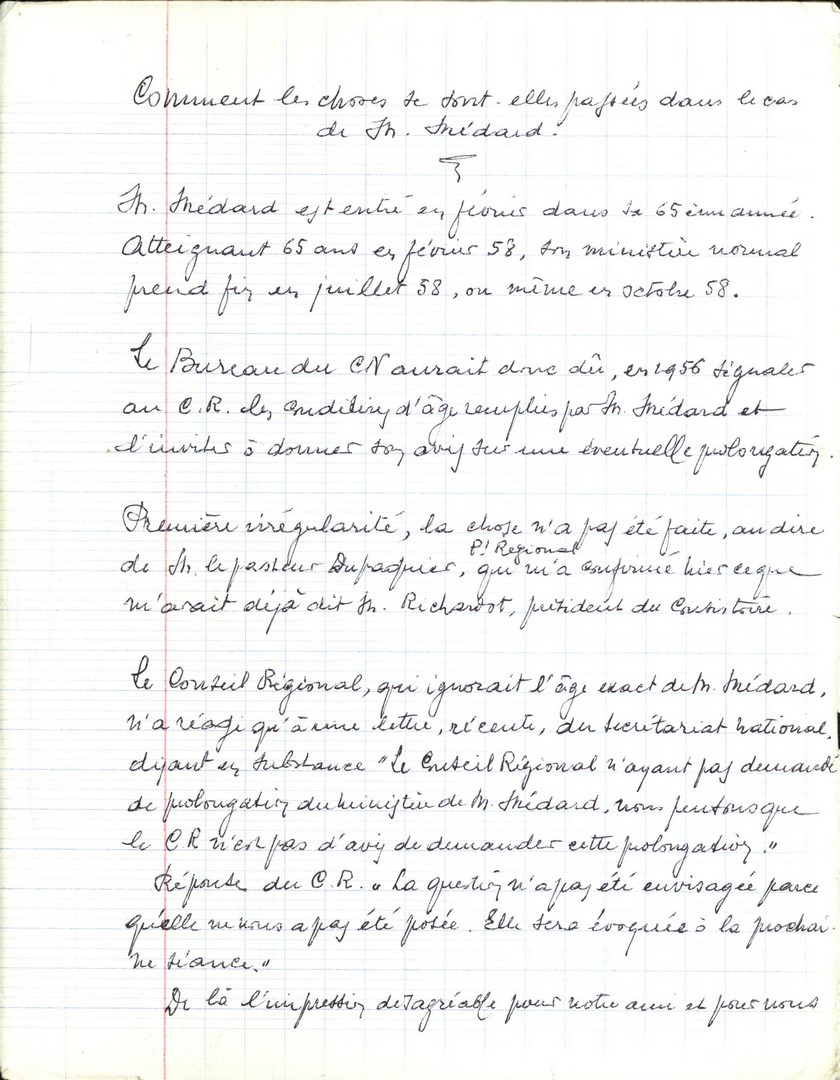 Comment les choses se sont-elles passées dans le cas
de M. Médard.
M. Médard est entré en février dans sa 65ème année.
Atteignant 65 ans en février 58, son ministère normal
prend fin en juillet 58, ou même en octobre 58.
Le Bureau du CN aurait donc dû, en 1956 signaler
au C.R. les conditions d'âge remplies par M. Médard et
l'inviter à donner son avis sur une éventuelle prolongation.
Première irrégularité, la chose n'a pas été faite, au dire
Pt Régional
de M. le pasteur Dupasquier, qui m'a confirmé hier ce que
m'avait déjà dit M. Richardot, président du Consistoire.
Le Conseil Régional, qui ignorait l'âge exact de M. Médard,
n'a réagi qu'à une lettre, récente, du Secrétariat National,
disant en substance "Le Conseil Régional n'ayant pas demandé
de prolongation du ministère de M. Médard, nous pensons que
le CR n'est pas d'avis de demander cette prolongation."
Réponse du C.R. "La question n'a pas été envisagée parce
qu'elle ne nous a pas été posée. Elle sera évoquée à la prochai-
ne séance."
De là l'impression désagréable pour notre ami et pour nous